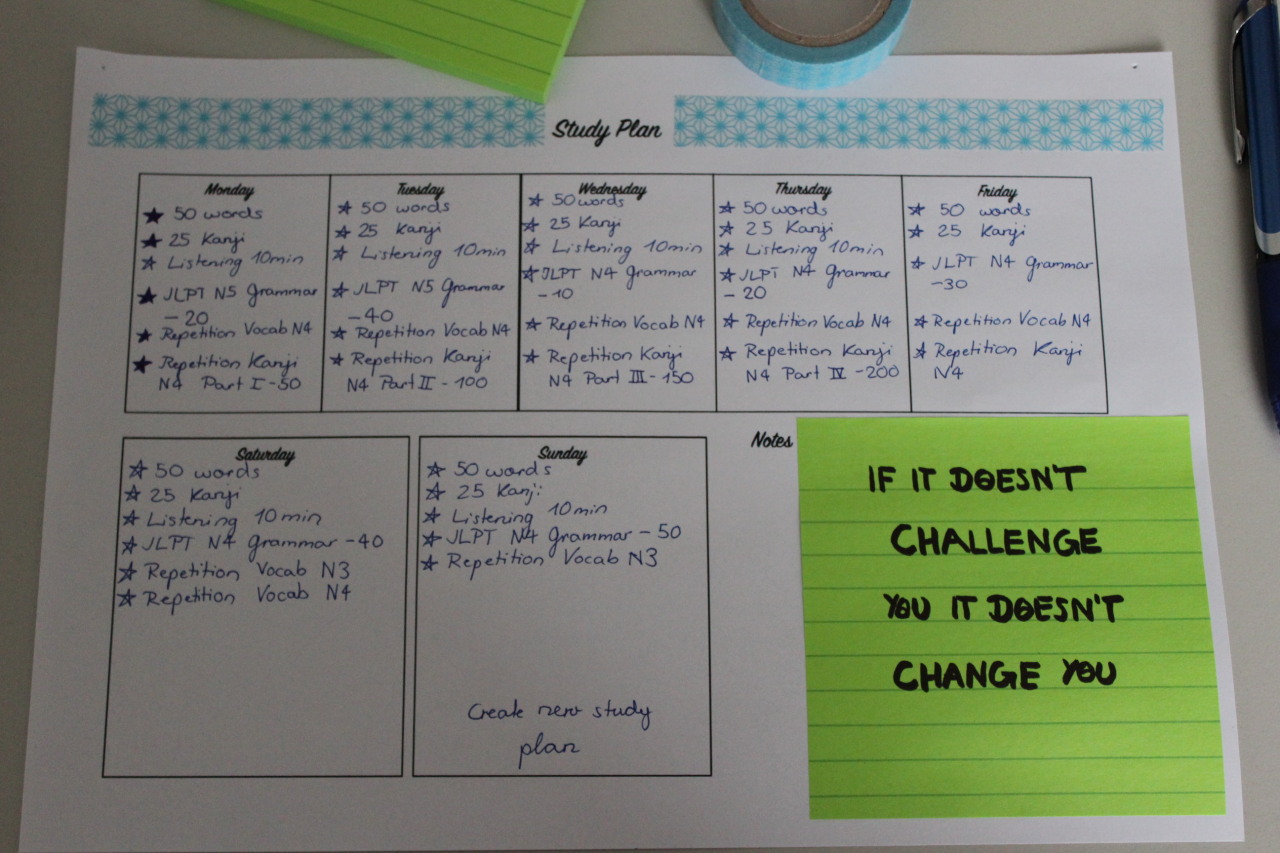 Study Plan
Monday
50 words
25 Kanji
Listening 10min
JLPT N5 Grammar
- 20
Repetition Vocab N4
Repetition Kanji
N4 Part I - 50
Tuesday
50 words
25 Kanji
Listening 10min
JLPT N5 Grammar
- 40
Repetition Vocab N4
Repetition Kanji
N4 Part II - 100
Wednesday
50 words
25 Kanji
Listening 10min
JLPT N4 Grammar
- 10
Repetition Vocab N4
Repetition Kanji
N4 Part III - 150
Thursday
50 words
25 Kanji
Listening 10min
JLPT N4 Grammar
- 20
Repetition Vocab N4
Repetition Kanji
N4 Part IV - 200
Friday
50 words
25 Kanji
JLPT N4 Grammar
- 30
Repetition Vocab N4
Repetition Kanji
N4
Saturday
50 words
25 Kanji
Listening 10min
JLPT N4 Grammar - 40
Repetition Vocab N3
Repetition Vocab N4
Sunday
50 words
25 Kanji
Listening 10min
JLPT N4 Grammar - 50
Repetition Vocab N3
Create new study
plan
Notes
IF IT DOESN'T
CHALLENGE
YOU IT DOESN'T
CHANGE YOU